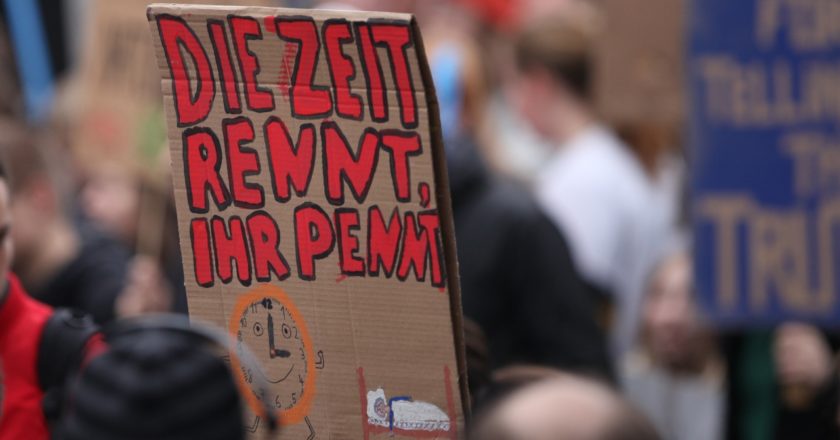 DIE ZEIT
RENNT,
IHR PENNT
12
FOR
TELLING
THE
TRUTH